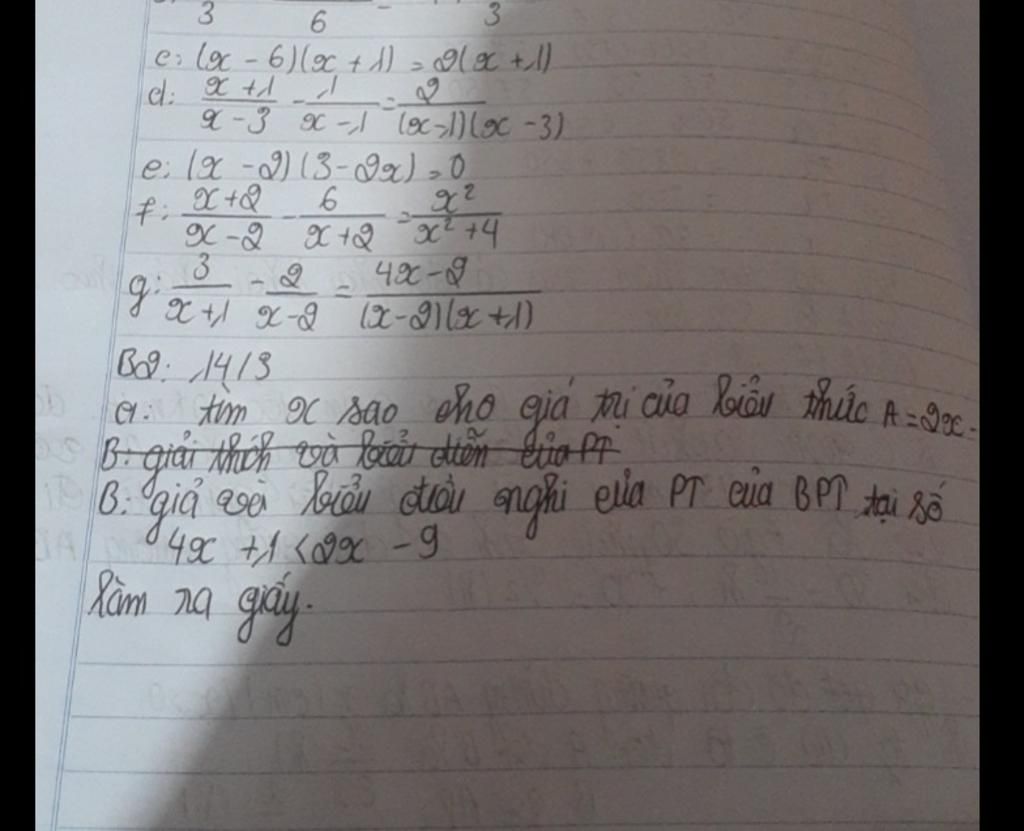 3 6 3
c: (x - 6)(x + 1) = 2(x + 1)
d: \frac{x + 1}{x - 3} - \frac{1}{x - 1} = \frac{2}{(x - 1)(x - 3)}
e: (x - 2)(3 - 2x) = 0
f: \frac{x + 2}{x - 2} - \frac{6}{x + 2} = \frac{x^2}{x^2 + 4}
g: \frac{3}{x + 1} - \frac{2}{x - 2} = \frac{4x - 2}{(x - 2)(x + 1)}
B2: 14/3
a: tìm x sao cho giá trị của biểu thức A = 2x -
B: giải thích và biểu diễn của PT
B: giả và biểu nghi của PT của BPT tại số
4x + 1 < 2x - 9
làm ra giấy.